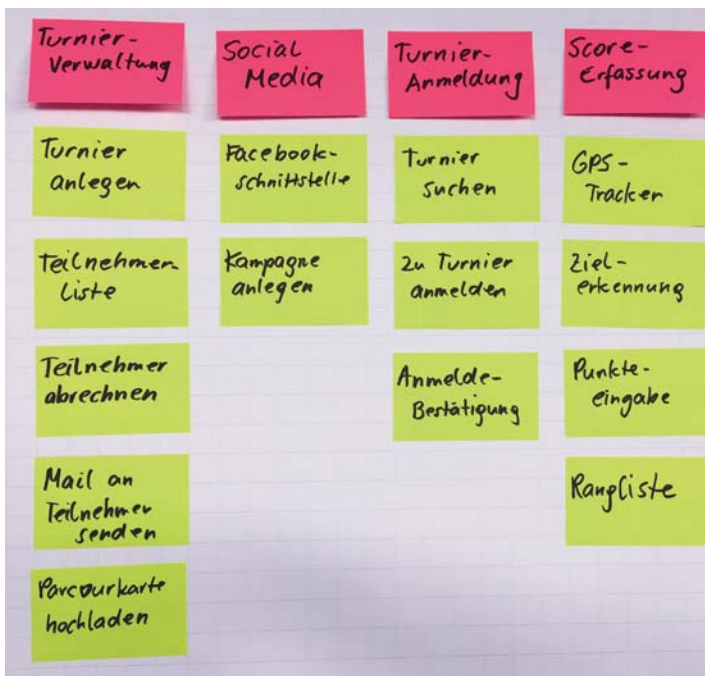 Turnier-
Verwaltung
Turnier
anlegen
Teilnehmer-
Liste
Teilnehmer
abrechnen
Mail an
Teilnehmer
senden
Parcourkarte
hochladen
Social
Media
Facebook-
schnittstelle
Kampagne
anlegen
Turnier-
Anmeldung
Turnier
suchen
Zu Turnier
anmelden
Anmelde-
Bestätigung
Score-
Erfassung
GPS-
Tracker
Ziel-
erkennung
Punkte-
eingabe
Rangliste